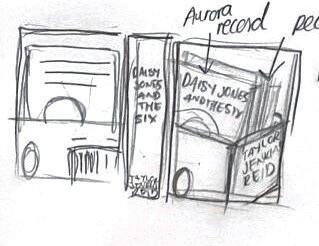 Aurora
record
DAISY
JONES
AND
THE
SIX
TAYLOR
JENKINS
REID
DAISY JONES
AND THE SIX
TAYLOR
JENKIN
REID